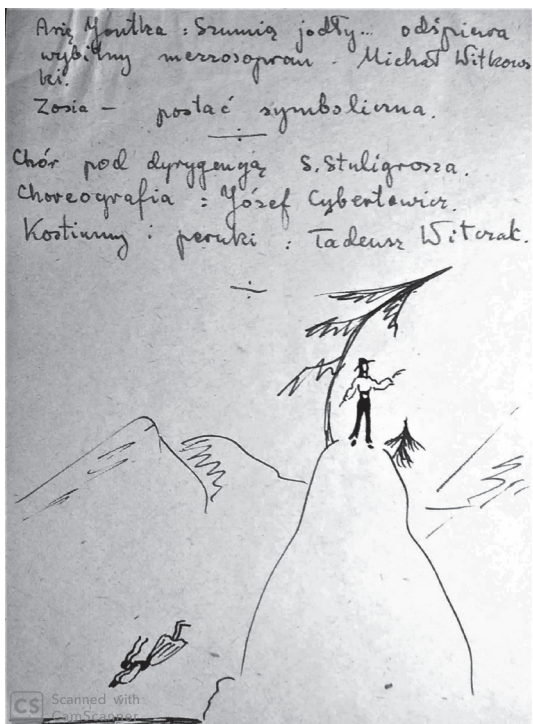 Arię Jontka : Szumią jodły... odśpiewa
wybitny mezzosopran - Michał Witkows
ki.
Zosia – postać symboliczna.
Chór pod dyrygengą S. Stuligrosza.
Choreografia : Józef Cybertowicz.
Kostiumy i peruki : Tadeusz Witczak.
CS Scanned with
CamScanner